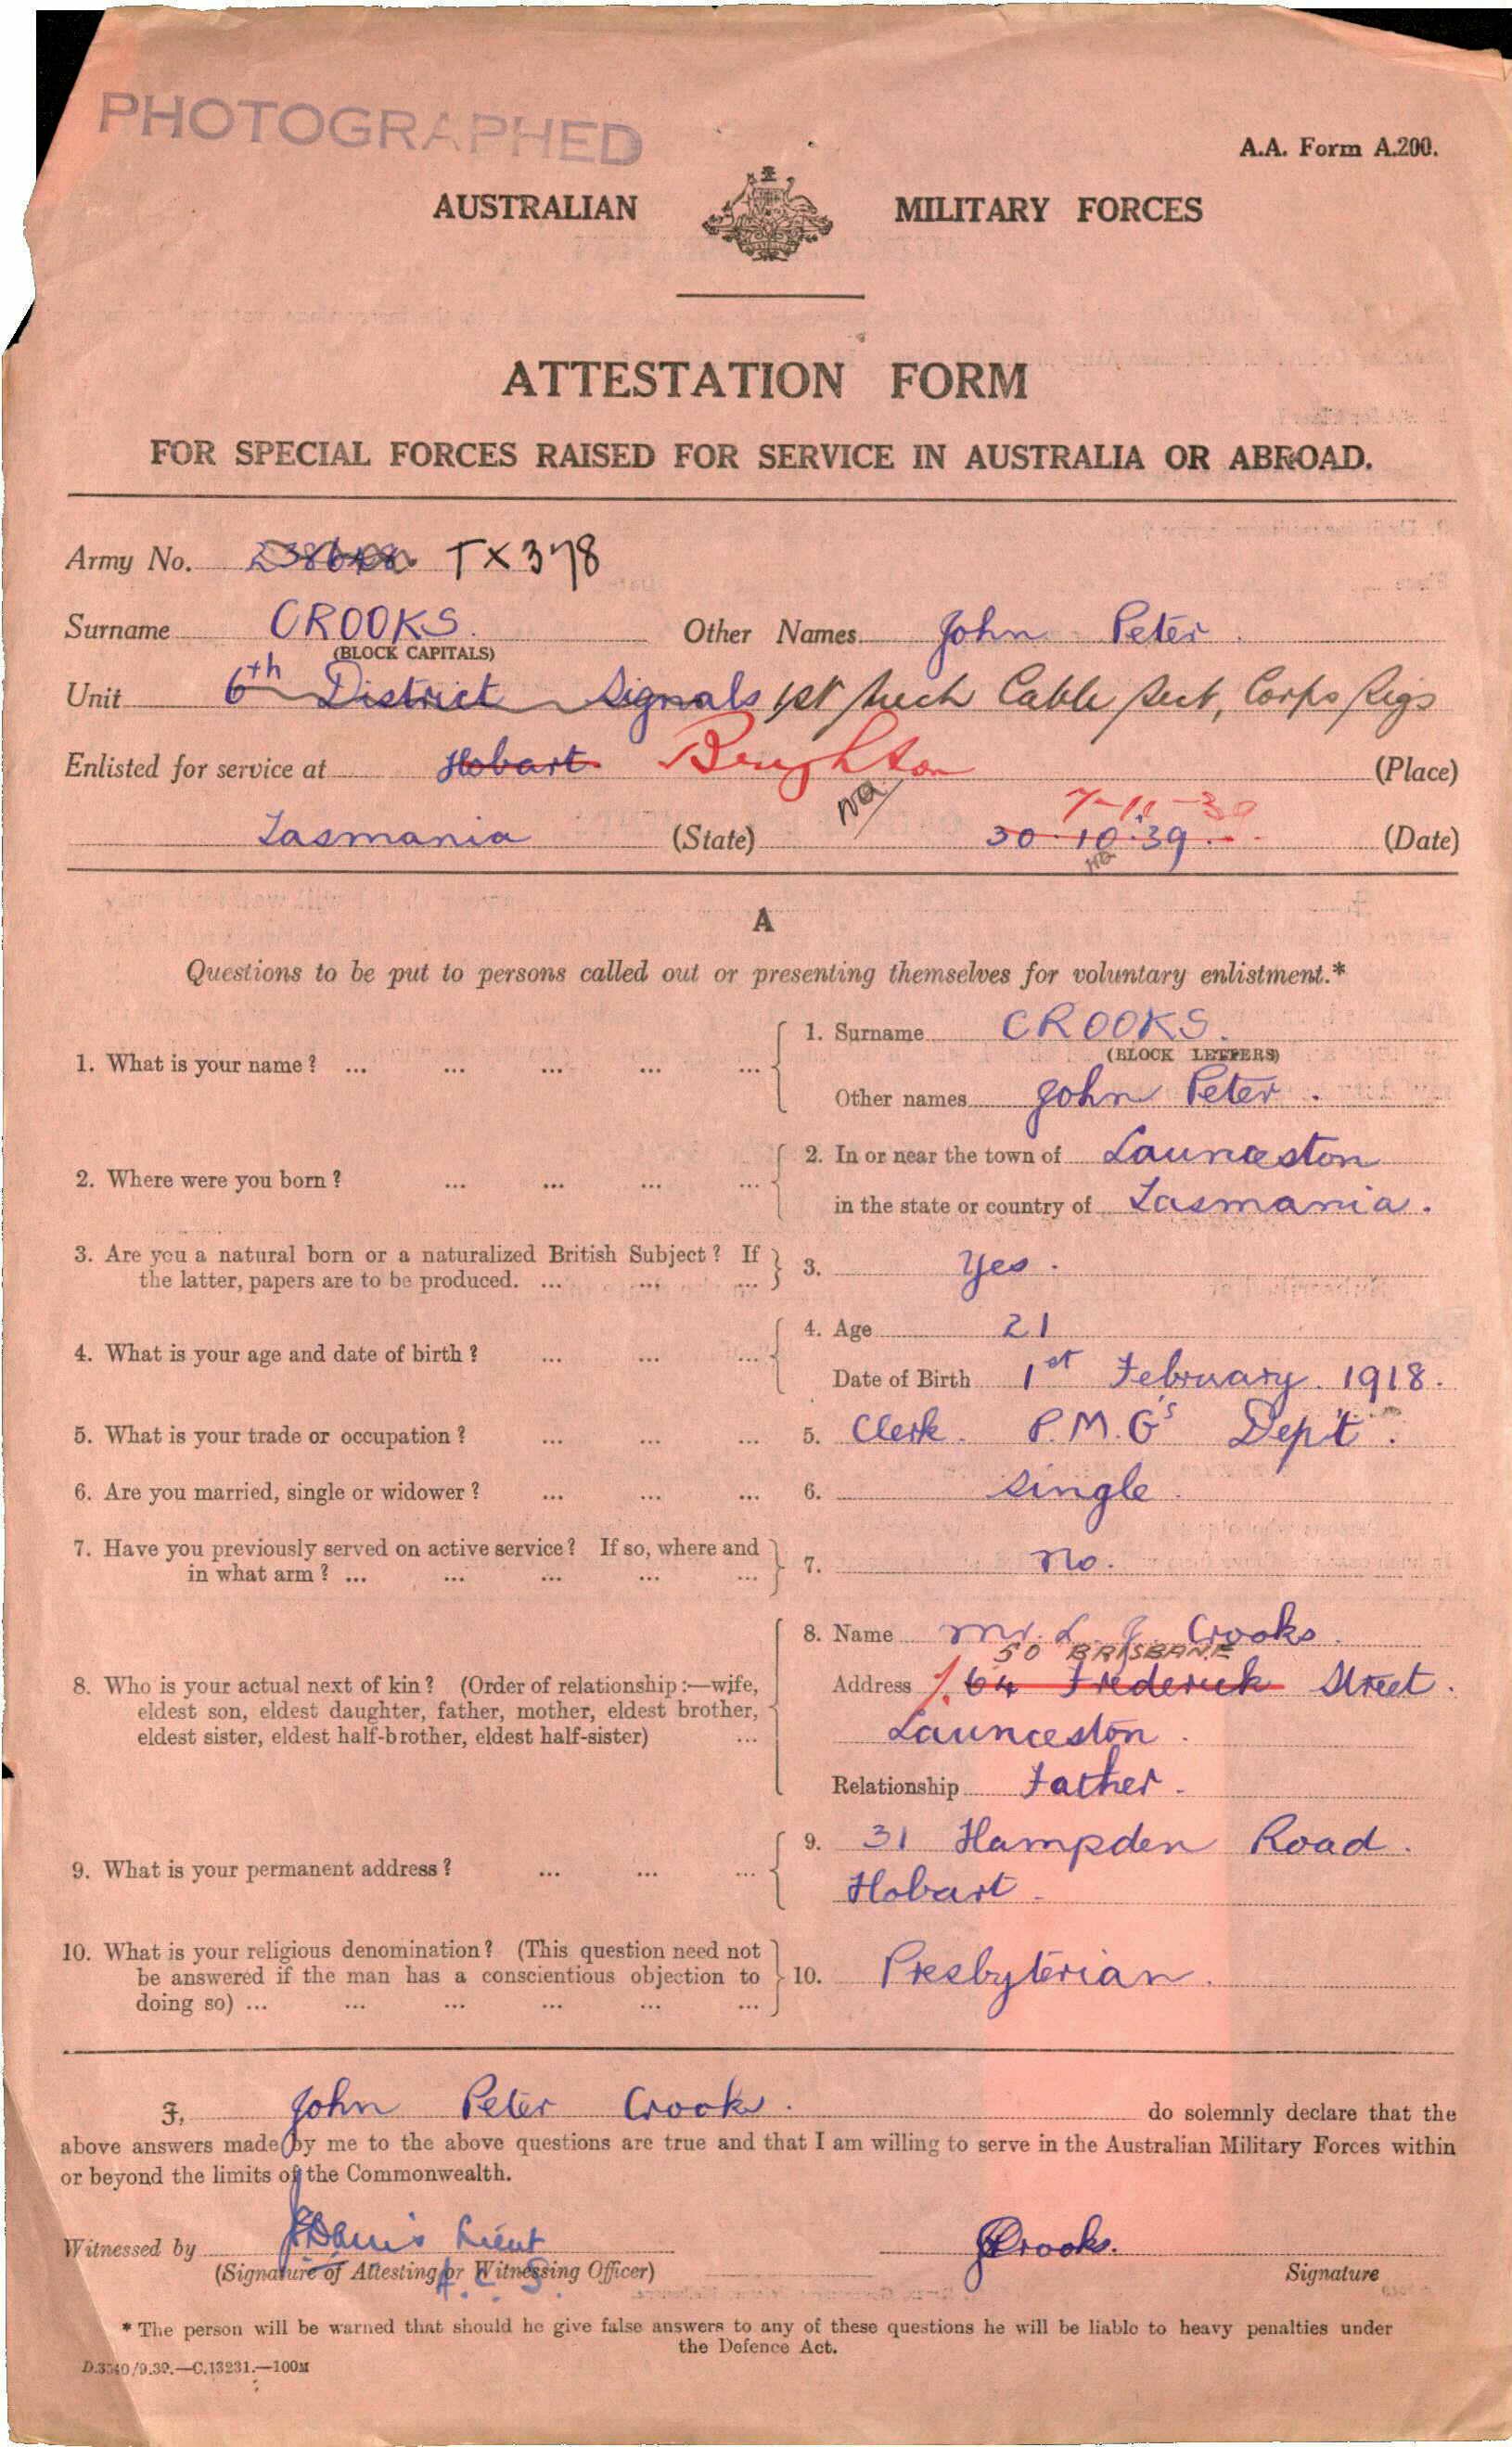 PHOTOGRAPHED
A.A. Form A.200.
AUSTRALIAN MILITARY FORCES
ATTESTATION FORM
FOR SPECIAL FORCES RAISED FOR SERVICE IN AUSTRALIA OR ABROAD.
Army No. TX378
Surname CROOKS. Other Names John Peter.
(BLOCK CAPITALS)
Unit 6th District Signals 1st Mech Cable Sect, Corps Sigs
Enlisted for service at Hobart Brighton (Place)
7-11-39
Tasmania (State) 30.10.39. (Date)
A
Questions to be put to persons called out or presenting themselves for voluntary enlistment.*
1. What is your name? ... ... ... ... ... 1. Surname CROOKS.
(BLOCK LETTERS)
Other names John Peter.
2. Where were you born? ... ... ... ... 2. In or near the town of Launceston
in the state or country of Tasmania.
3. Are you a natural born or a naturalized British Subject? If the latter, papers are to be produced. ... ... ... 3. Yes.
4. What is your age and date of birth? ... ... ... 4. Age 21
Date of Birth 1st February. 1918.
5. What is your trade or occupation? ... ... ... 5. Clerk. P.M.G's Dep't.
6. Are you married, single or widower? ... ... ... 6. Single.
7. Have you previously served on active service? If so, where and in what arm? ... ... ... ... ... 7. No.
8. Who is your actual next of kin? (Order of relationship:—wife, eldest son, eldest daughter, father, mother, eldest brother, eldest sister, eldest half-brother, eldest half-sister) ...
8. Name Mr. L. J. Crooks.
50 BRISBANE
Address 64 Frederick Street.
Launceston.
Relationship Father.
9. What is your permanent address? ... ... ... 9. 31 Hampden Road.
Hobart.
10. What is your religious denomination? (This question need not be answered if the man has a conscientious objection to doing so) ... ... ... ... ... ... 10. Presbyterian.
I, John Peter Crooks. do solemnly declare that the
above answers made by me to the above questions are true and that I am willing to serve in the Australian Military Forces within
or beyond the limits of the Commonwealth.
Witnessed by Lieut JCrooks.
(Signature of Attesting or Witnessing Officer) Signature
* The person will be warned that should he give false answers to any of these questions he will be liable to heavy penalties under
the Defence Act.
D.3540/9.39.—C.13231.—100M